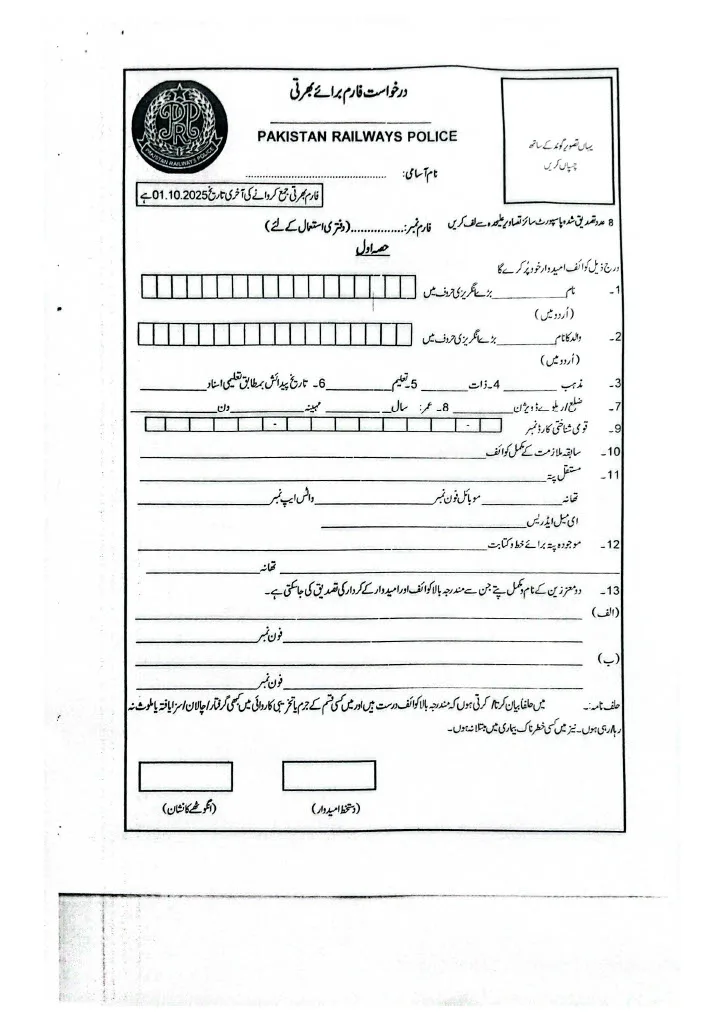 درخواست فارم برائے بھرتی
PAKISTAN RAILWAYS POLICE
PAKISTAN RAILWAYS POLICE
یہاں تصویر گوند کے ساتھ
چسپاں کریں
نام آسامی: ........................................
فارم بھرتی جمع کروانے کی آخری تاریخ 01.10.2025 ہے
8 عدد تصدیق شدہ پاسپورٹ سائز تصاویر علیحدہ سے لف کریں
فارم نمبر: ................(دفتری استعمال کے لئے)
حصہ اول
درج ذیل کوائف امیدوار خود پُر کرے گا
1۔ نام ____________ بڑے انگریزی حروف میں
(اُردو میں)
2۔ والد کا نام ____________ بڑے انگریزی حروف میں
(اُردو میں)
3۔ مذہب ________ 4۔ ذات ________ 5۔ تعلیم ________ 6۔ تاریخ پیدائش بمطابق تعلیمی اسناد ____________
7۔ ضلع / ریلوے ڈویژن ____________ 8۔ عمر: سال ________ مہینہ ________ دن ____________
9۔ قومی شناختی کارڈ نمبر - -
10۔ سابقہ ملازمت کے مکمل کوائف ____________
11۔ مستقل پتہ ____________
تھانہ ____________ موبائل فون نمبر ____________ واٹس ایپ نمبر ____________
ای میل ایڈریس ____________
12۔ موجودہ پتہ برائے خط و کتابت ____________
____________ تھانہ ____________
13۔ دو معززین کے نام و مکمل پتے جن سے مندرجہ بالا کوائف اور امیدوار کے کردار کی تصدیق کی جاسکتی ہے۔
(الف) ____________
____________ فون نمبر ____________
(ب) ____________
____________ فون نمبر ____________
حلف نامہ:۔ میں حلفاً بیان کرتا / کرتی ہوں کہ مندرجہ بالا کوائف درست ہیں اور میں کسی قسم کے جرم یا تخریبی کاروائی میں کبھی گرفتار / چالان / سزا یافتہ یا ملوث نہ
رہا / رہی ہوں۔ نیز میں کسی خطرناک بیماری میں مبتلا نہ ہوں۔
(دستخط امیدوار) (انگوٹھے کا نشان)